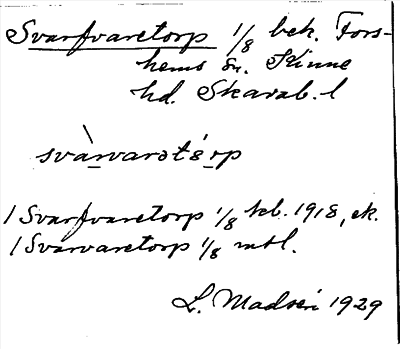 Svarfvaretorp 1/8 bek. Fors-
hems sn. Kinne
hd. Skarab. l
svàrvarətórp
1 Svarfvaretorp 1/8 kb. 1918, ek.
1 Svarvaretorp 1/8 mtl.
L. Madsén 1929